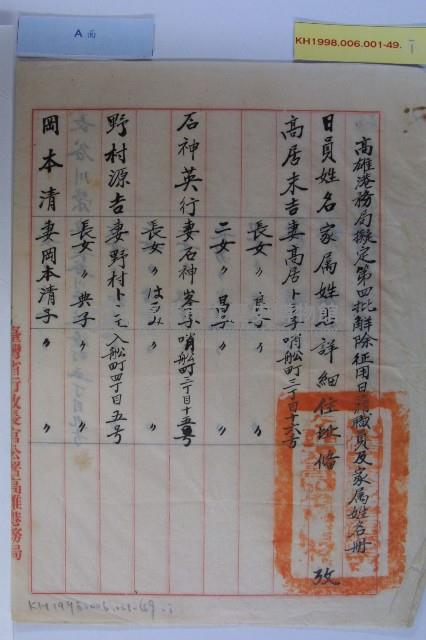 A面
KH1998.006.001-49-1
高雄港務局擬定第四批解除征用日籍職員及家属姓名册
日員姓名 家属姓名 詳細住址 俻 攷
高居末吉 妻高居トシ子 哨舩町三丁目十六号
長女〃 良子 〃 〃
二女〃 昌子 〃 〃
石神英行 妻石神峯子 哨舩町二丁目十五号
長女〃 はるみ 〃 〃
野村源吉 妻野村トミヱ 入舩町四丁目五号
長女〃 典子 〃 〃
岡本清 妻岡本清子 〃 〃
臺灣省行政長官公署高雄港務局
KH1998.006.001-49-1